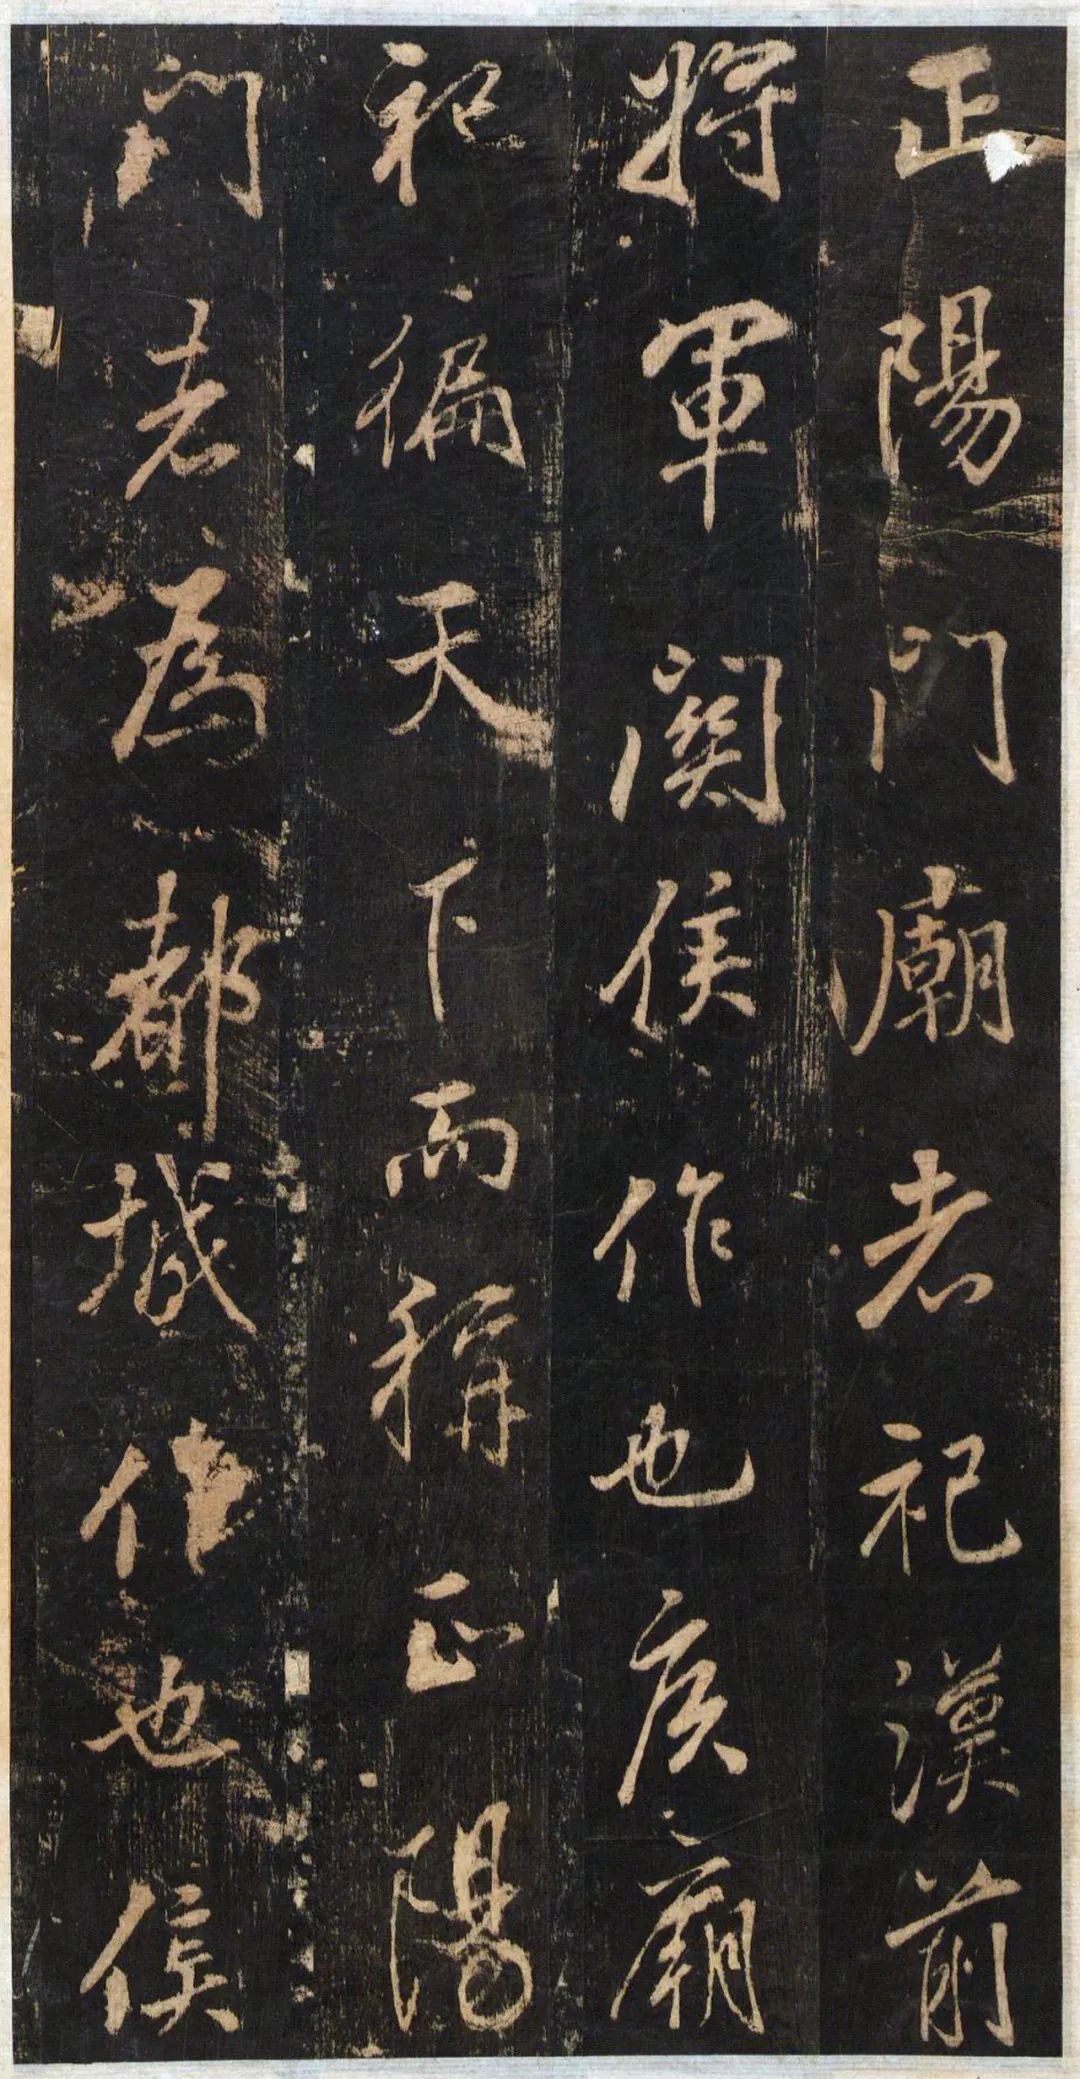 正陽門廟者祀漢前
將軍關侯作也侯廟
祀徧天下而稱正陽
门者為都城作也侯